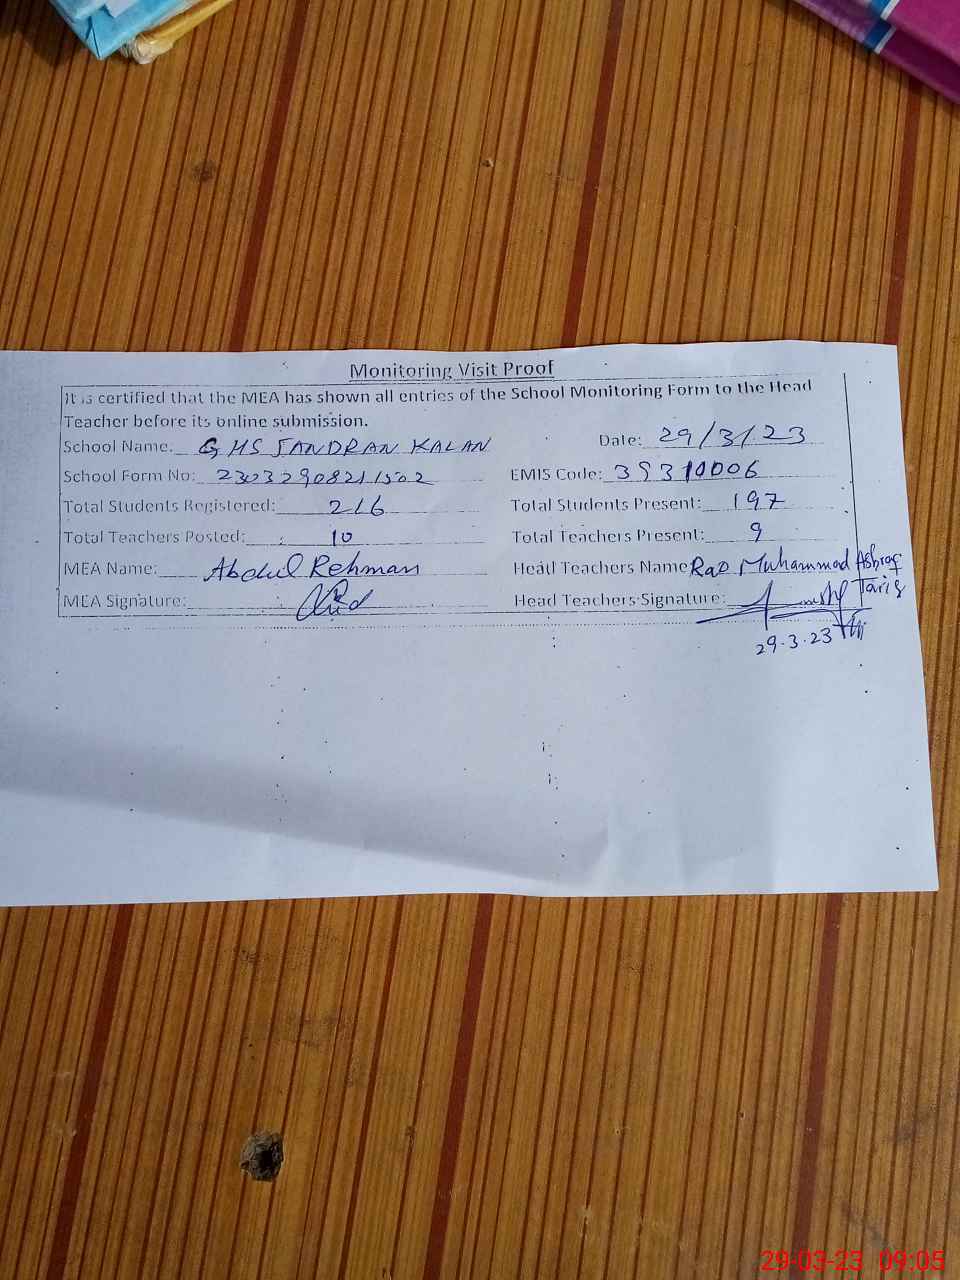 Monitoring Visit Proof
It is certified that the MEA has shown all entries of the School Monitoring Form to the Head
Teacher before its online submission.
School Name: GHS JANDRAN KALAN Date: 29/3/23
School Form No: 23032908211502 EMIS Code: 39310006
Total Students Registered: 216 Total Students Present: 197
Total Teachers Posted: 10 Total Teachers Present: 9
MEA Name: Abdul Rehman Head Teachers Name Rao Muhammad Ashraf
MEA Signature: Head Teachers Signature:
29.3.23
29-03-23 09:05